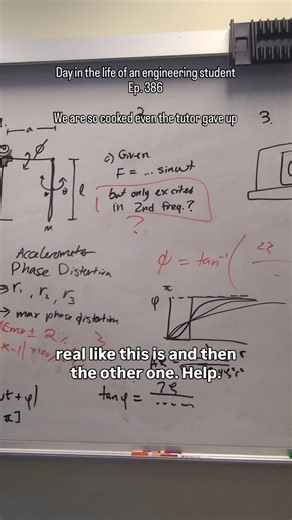 Day in the life of an engineering student
Ep. 386
We are so cooked even the tutor gave up
3.
a
ϕ
θ
l
M
c) Given
F = ... sinωt
but only excited
in 2nd freq.?
?
Accelerometer
Phase Distortion
→ r₁, r₂, r₃
→ max phase distortion
± 2%
ϕ = tan⁻¹(
π
φ
real like this is and then
the other one. Help.
ωt + φ)
π]
tan φ =